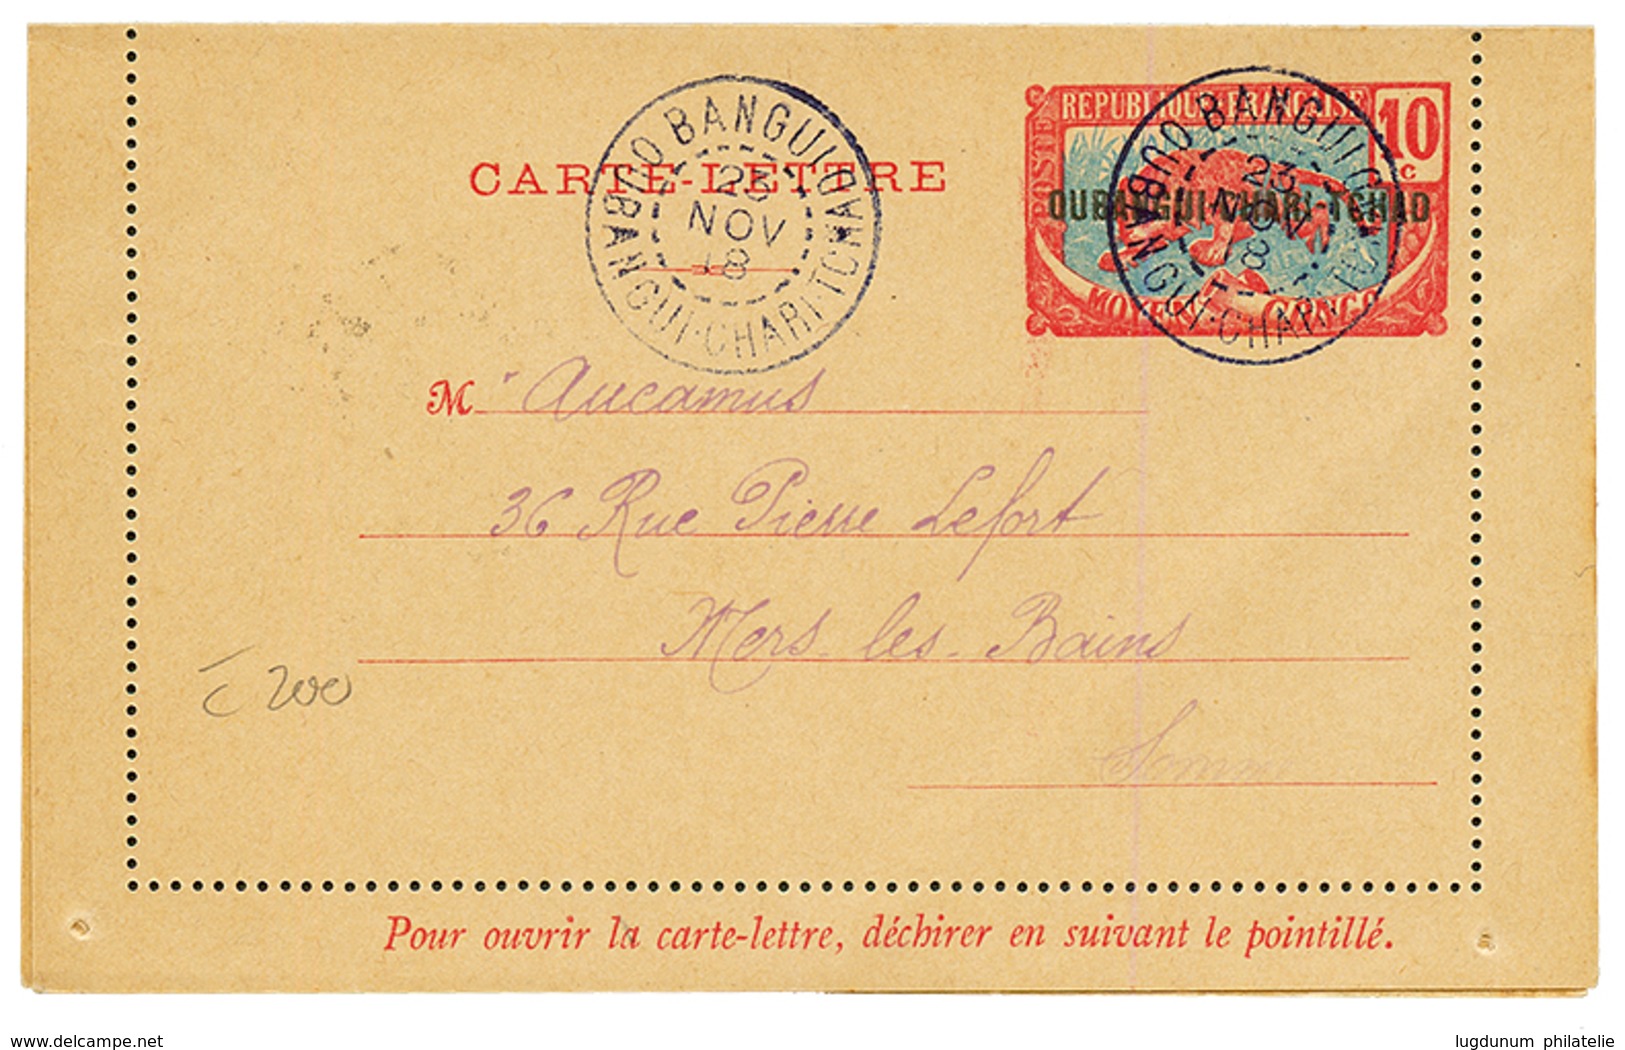 REPUBLIQUE FRANÇAISE 10 c
POSTE
CARTE-LETTRE
OUBANGUI-CHARI-TCHAD
MOYEN CONGO
BANGUI
23
NOV
18
OUBANGUI·CHARI·TCHAD
BANGUI
23
NOV
18
OUBANGUI·CHARI·TCHAD
M r Aucamus
36 Rue Pierre Lefort
Mers-les-Bains
Somme
200
Pour ouvrir la carte-lettre, déchirer en suivant le pointillé.
www.delcampe.net
lugdunum philatelie